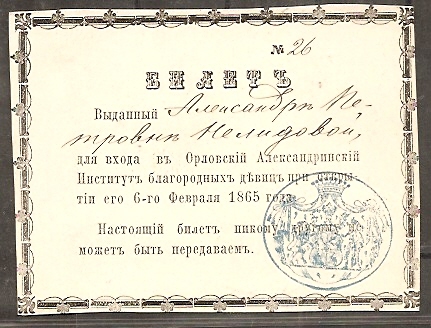 № 26
БИЛЕТЪ
Выданный Александрѣ Пе-
тровнѣ Нелидовой,
для входа въ Орловскій Александринскій
Институтъ благородныхъ дѣвицъ при откры-
тіи его 6-го Февраля 1865 года.
Настоящій билетъ никому другому не
можетъ быть передаваемъ.